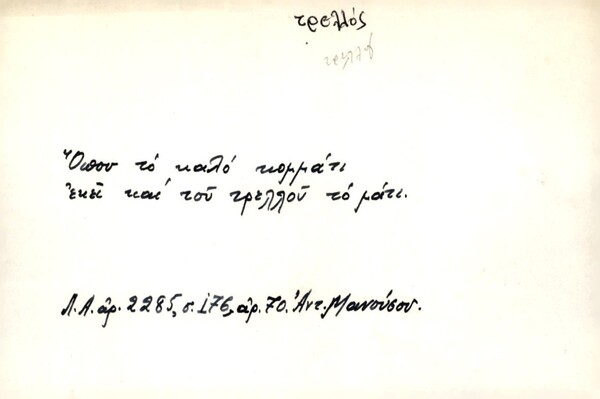 τρελλός
τρελλό
Ὅπου τὸ καλὸ κομμάτι
ἐκεῖ καὶ τοῦ τρελλοῦ τὸ μάτι.
Λ.Α. ἀρ. 2285, σ. 176, ἀρ. 70. Ἀντ. Μανούσου.